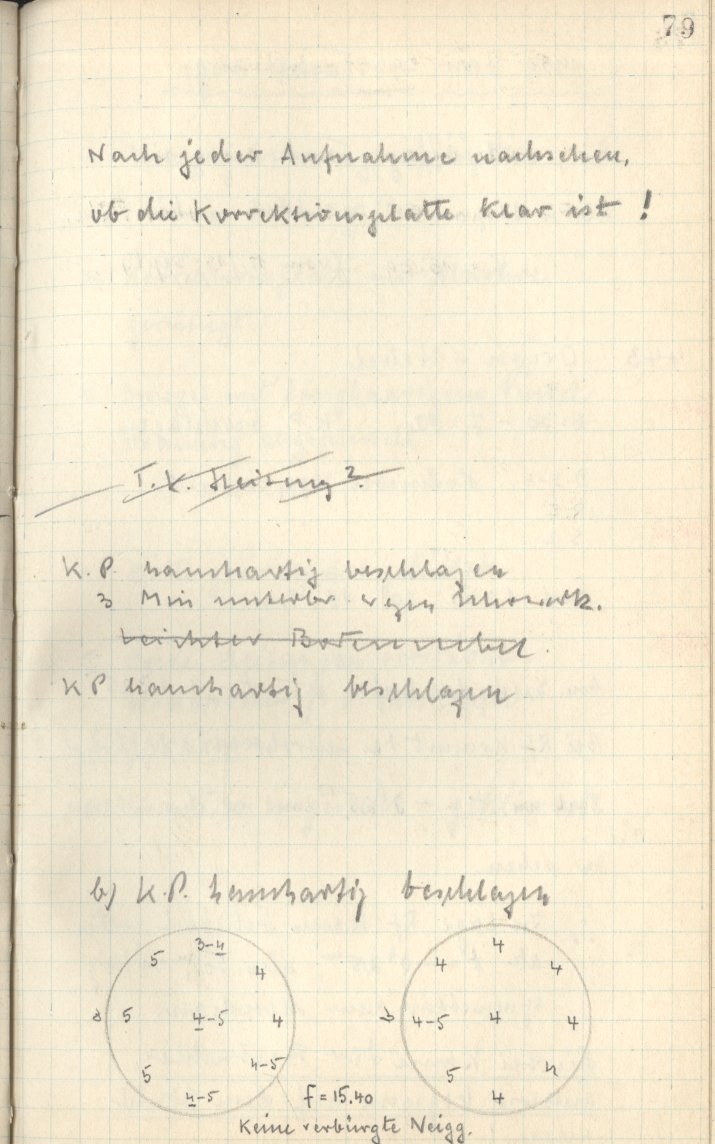 79
Nach jeder Aufnahme nachsehen,
ob die Korrektionsplatte klar ist !
K.P. hauchartig beschlagen
3 Min unterbr. wegen
Leichter Bodennebel.
KP hauchartig beschlagen
b) K.P. hauchartig beschlagen
3-4
5 4
a 5 4-5 4
5 4-5
4-5
4
4 4
b 4-5 4 4
5 4
4
f = 15.40
Keine verbürgte Neigg.